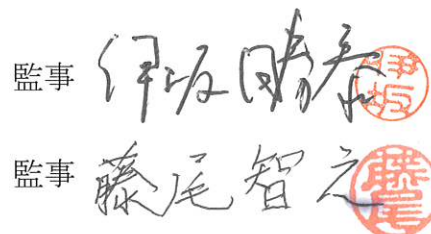 監事 伊坂晴泰 伊坂
監事 藤尾智之 藤尾